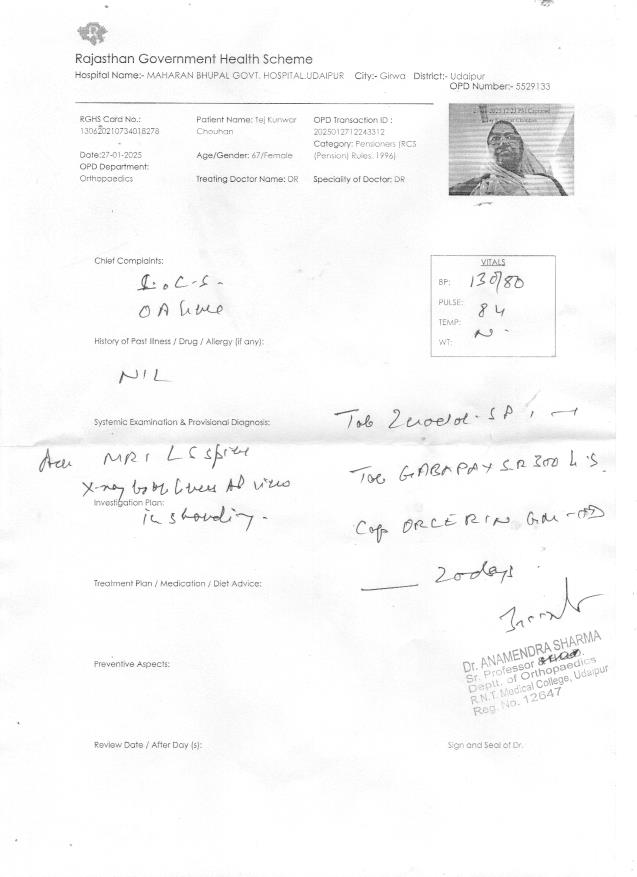 Rajasthan Government Health Scheme
Hospital Name:- MAHARAN BHUPAL GOVT. HOSPITAL,UDAIPUR City:- Girwa District:- Udaipur
OPD Number:- 5529133
RGHS Card No.:
130620210734018278
Date:27-01-2025
OPD Department:
Orthopaedics
Patient Name: Tej Kunwar
Chouhan
Age/Gender: 67/Female
Treating Doctor Name: DR
OPD Transaction ID :
2025012712243312
Category: Pensioners (RCS
(Pension) Rules, 1996)
Speciality of Doctor: DR
Chief Complaints:
OA
VITALS
BP: 130/80
PULSE: 84
TEMP: N
WT:
History of Past Illness / Drug / Allergy (if any):
NIL
Systemic Examination & Provisional Diagnosis:
MRI LS spine
X-ray both knees AP view
in standing.
Investigation Plan:
Tab Zerodol-SP 1
Tab GABAPAX SR 300
Cap ORCERIN GM - OD
20 days
Treatment Plan / Medication / Diet Advice:
Dr. ANAMENDRA SHARMA
Sr. Professor
Deptt. of Orthopaedics
R.N.T. Medical College, Udaipur
Reg. No. 12647
Preventive Aspects:
Review Date / After Day (s):
Sign and Seal of Dr.